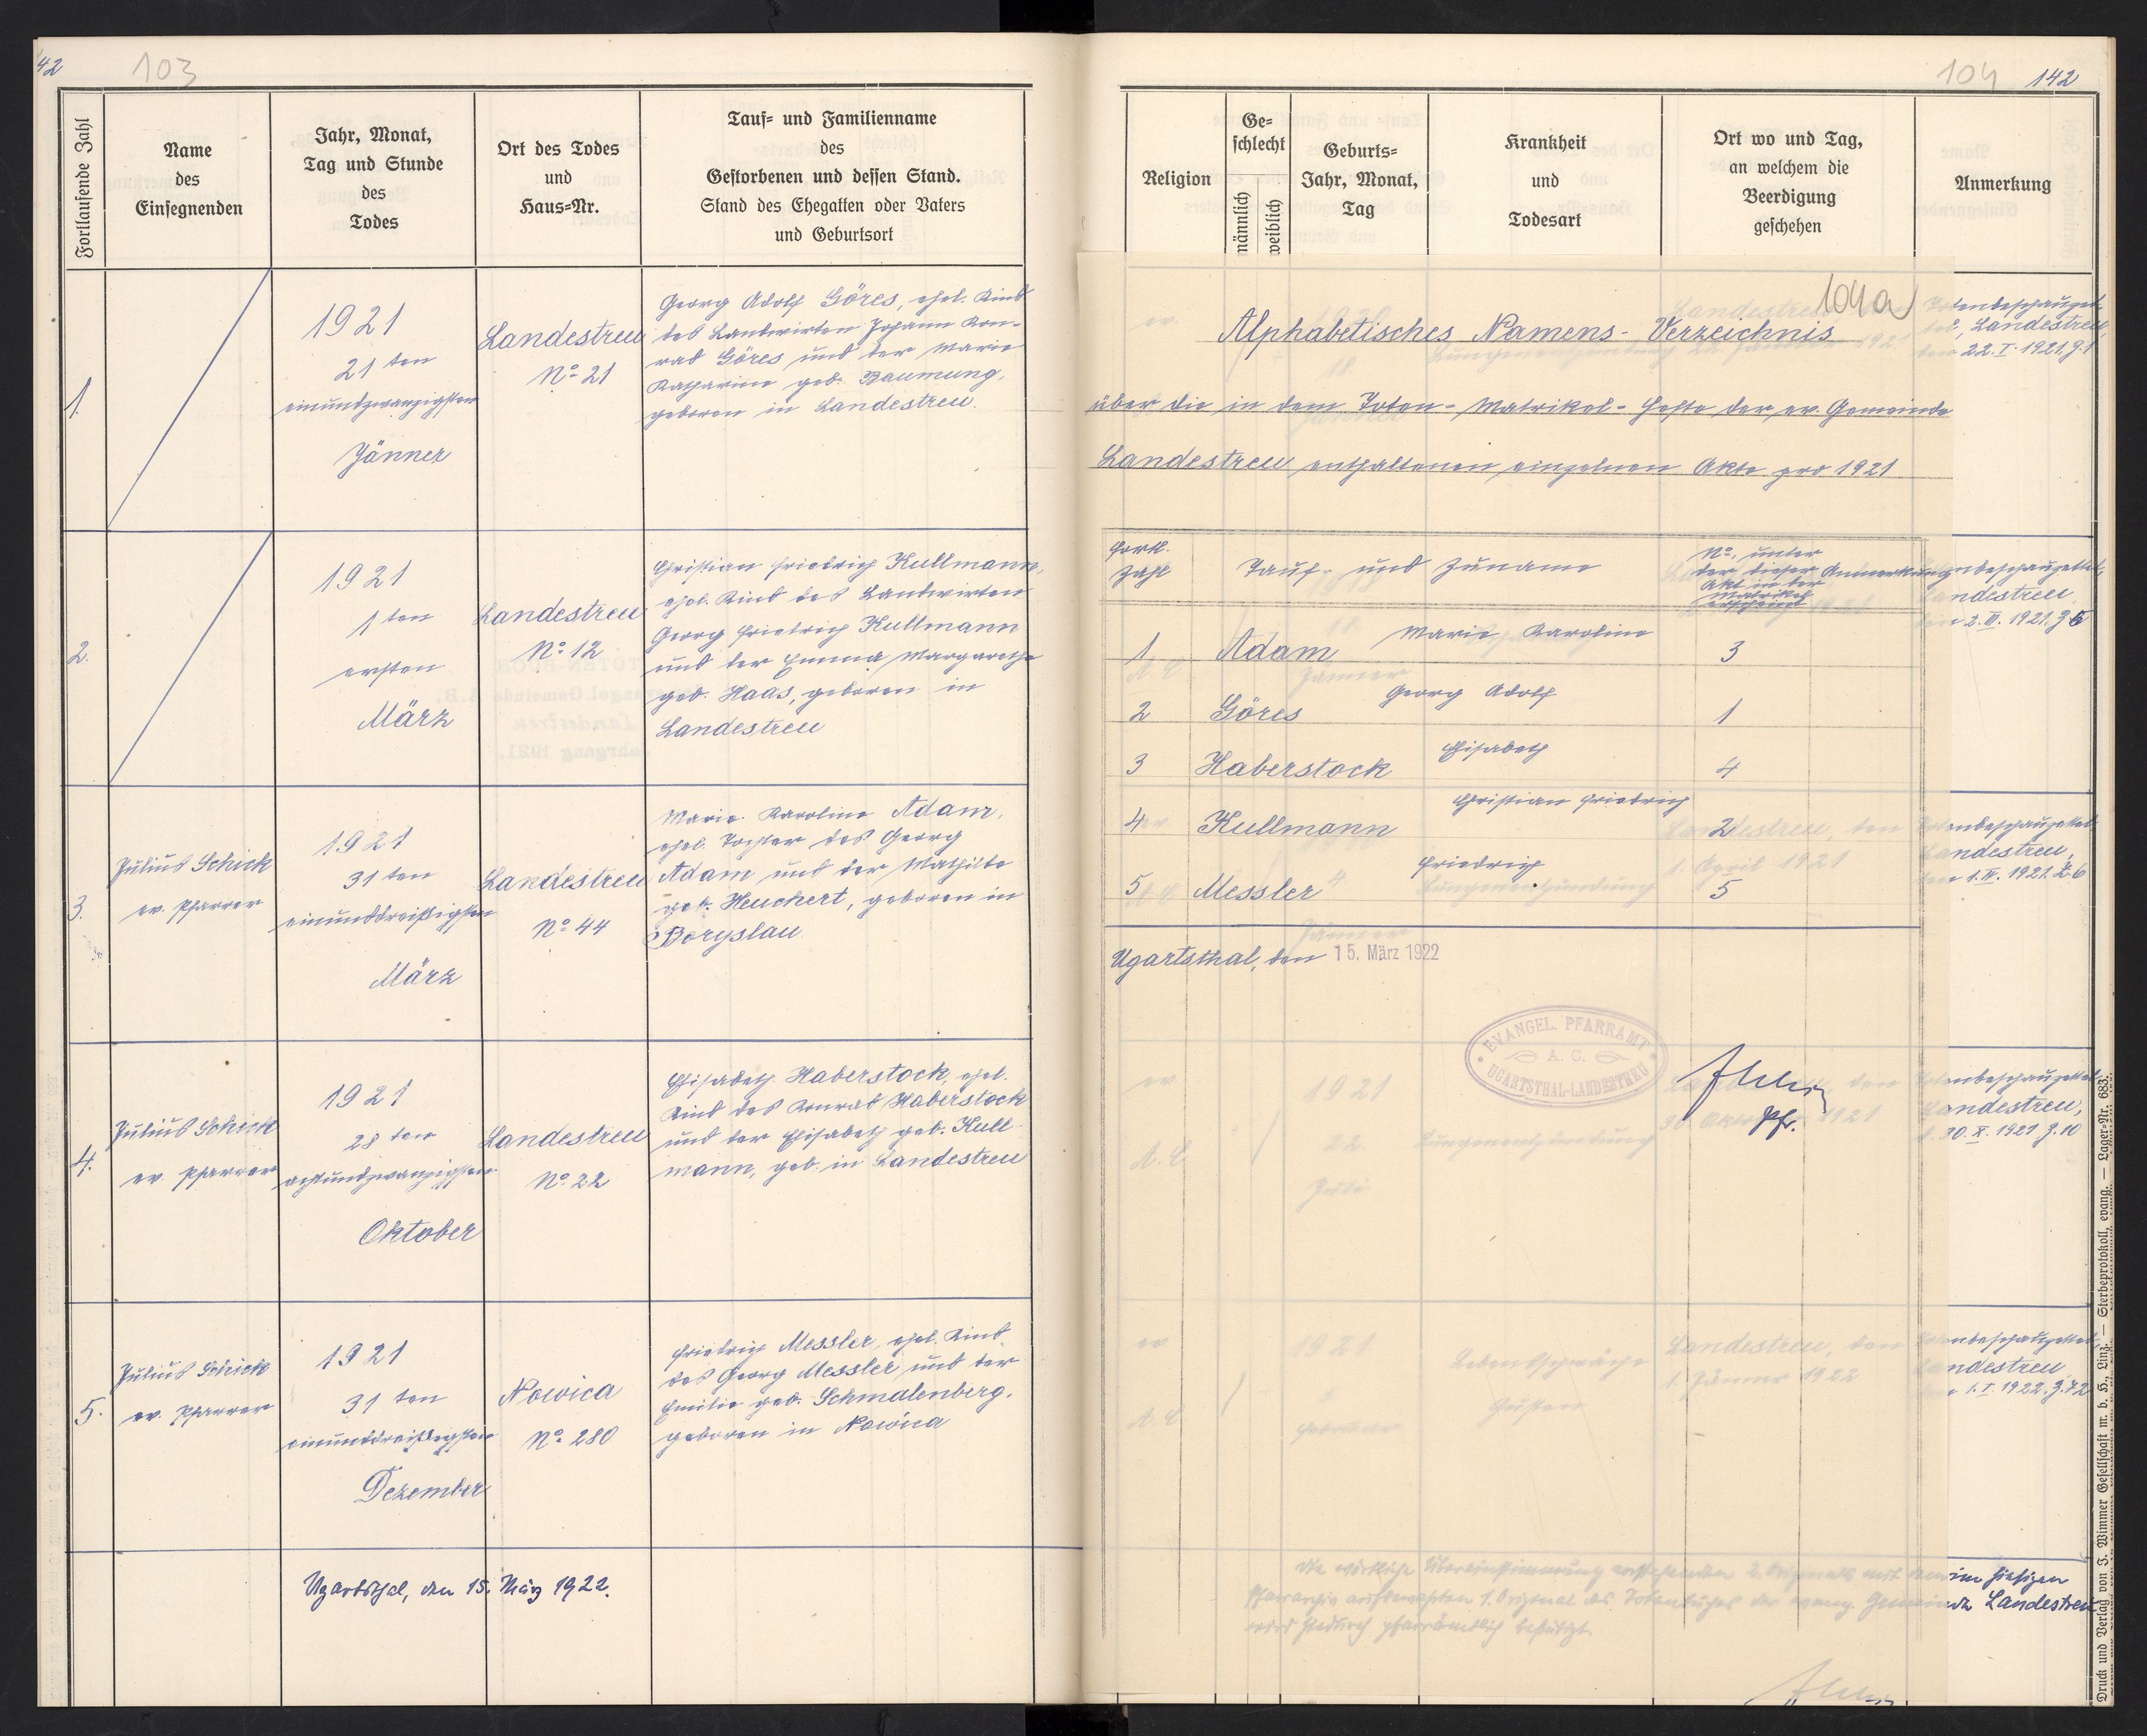 42
103
Fortlaufende Zahl
Name
des
Einsegnenden
Jahr, Monat,
Tag und Stunde
des
Todes
Ort des Todes
und
Haus=Nr.
Tauf= und Familienname
des
Gestorbenen und dessen Stand.
Stand des Ehegatten oder Vaters
und Geburtsort
1.
1921
21 ten
einundzwanzigsten
Jänner
Landestreu
No 21
Georg Adolf Göres, ehel. Kind
des Landwirten Johann Kon-
rad Göres und der Marie
Katharine geb. Baumung,
geboren in Landestreu.
2.
1921
1 ten
ersten
März
Landestreu
No 12
Christian Friedrich Kullmann,
ehel. Kind des Landwirten
Georg Friedrich Kullmann
und der Emma Margarethe
geb. Haas, geboren in
Landestreu
3.
Julius Schick
ev. Pfarrer
1921
31 ten
einunddreißigsten
März
Landestreu
No 44
Marie Karoline Adam,
ehel. Tochter des Georg
Adam und der Mathilde
geb. Heuchert, geboren in
Boryslau
4.
Julius Schick
ev. Pfarrer
1921
28 ten
achtundzwanzigsten
Oktober
Landestreu
No 22
Elisabeth Haberstock, ehel.
Kind des Konrad Haberstock
und der Elisabeth geb. Kull
mann, geb. in Landestreu
5.
Julius Schick
ev. Pfarrer
1921
31 ten
einunddreißigsten
Dezember
Nowica
No 280
Friedrich Messler, ehel. Kind
des Georg Messler und der
Emilie geb. Schmalenberg,
geboren in Nowica
Ugartsthal, den 15. März 1922.
104 142
Religion
Ge=
schlecht
männlich
weiblich
Geburts=
Jahr, Monat,
Tag
Krankheit
und
Todesart
Ort wo und Tag,
an welchem die
Beerdigung
geschehen
Anmerkung
104a
Alphabetisches Namens-Verzeichnis
über die in dem Toten-Matrikel-Hefte der ev. Gemeinde
Landestreu enthaltenen einzelnen Akte pro 1921
Fortl.
Zahl
Tauf- und Zuname
No, unter
der dieser
Akt in der
Matrikel
erscheint
Anmerkung
1 Adam Marie Karoline 3
2 Göres Georg Adolf 1
3 Haberstock Elisabeth 4
4 Kullmann Christian Friedrich 2
5 Messler Friedrich 5
Ugartsthal, den 15. März 1922
EVANGEL. PFARRAMT
A. C.
UGARTSTHAL-LANDESTREU
Pfr.
Landestreu,
22. I. 1921 Z. 1
2. III. 1921. Z 5
Landestreu, den
1. April 1921
Lungenentzündung
1. IV. 1921. Z. 6
1921
22
Juli
Lungenentzündung
A. C.
30. X. 1921 Z. 10
ev.
A. C.
1921
Lebensschwäche
Landestreu, den
1. Jänner 1922
1. I. 1922. Z. 72
Die wörtliche Übereinstimmung vorstehenden 2. Originals mit dem im hiesigen
Pfarrarchiv aufbewahrten 1. Original des Totenbuches der evang. Gemeinde Landestreu
wird hiedurch pfarrämtlich bestätigt.
Druck und Verlag von J. Wimmer Gesellschaft m. b. H., Linz. — Sterbeprotokoll, evang. — Lager-Nr. 683.